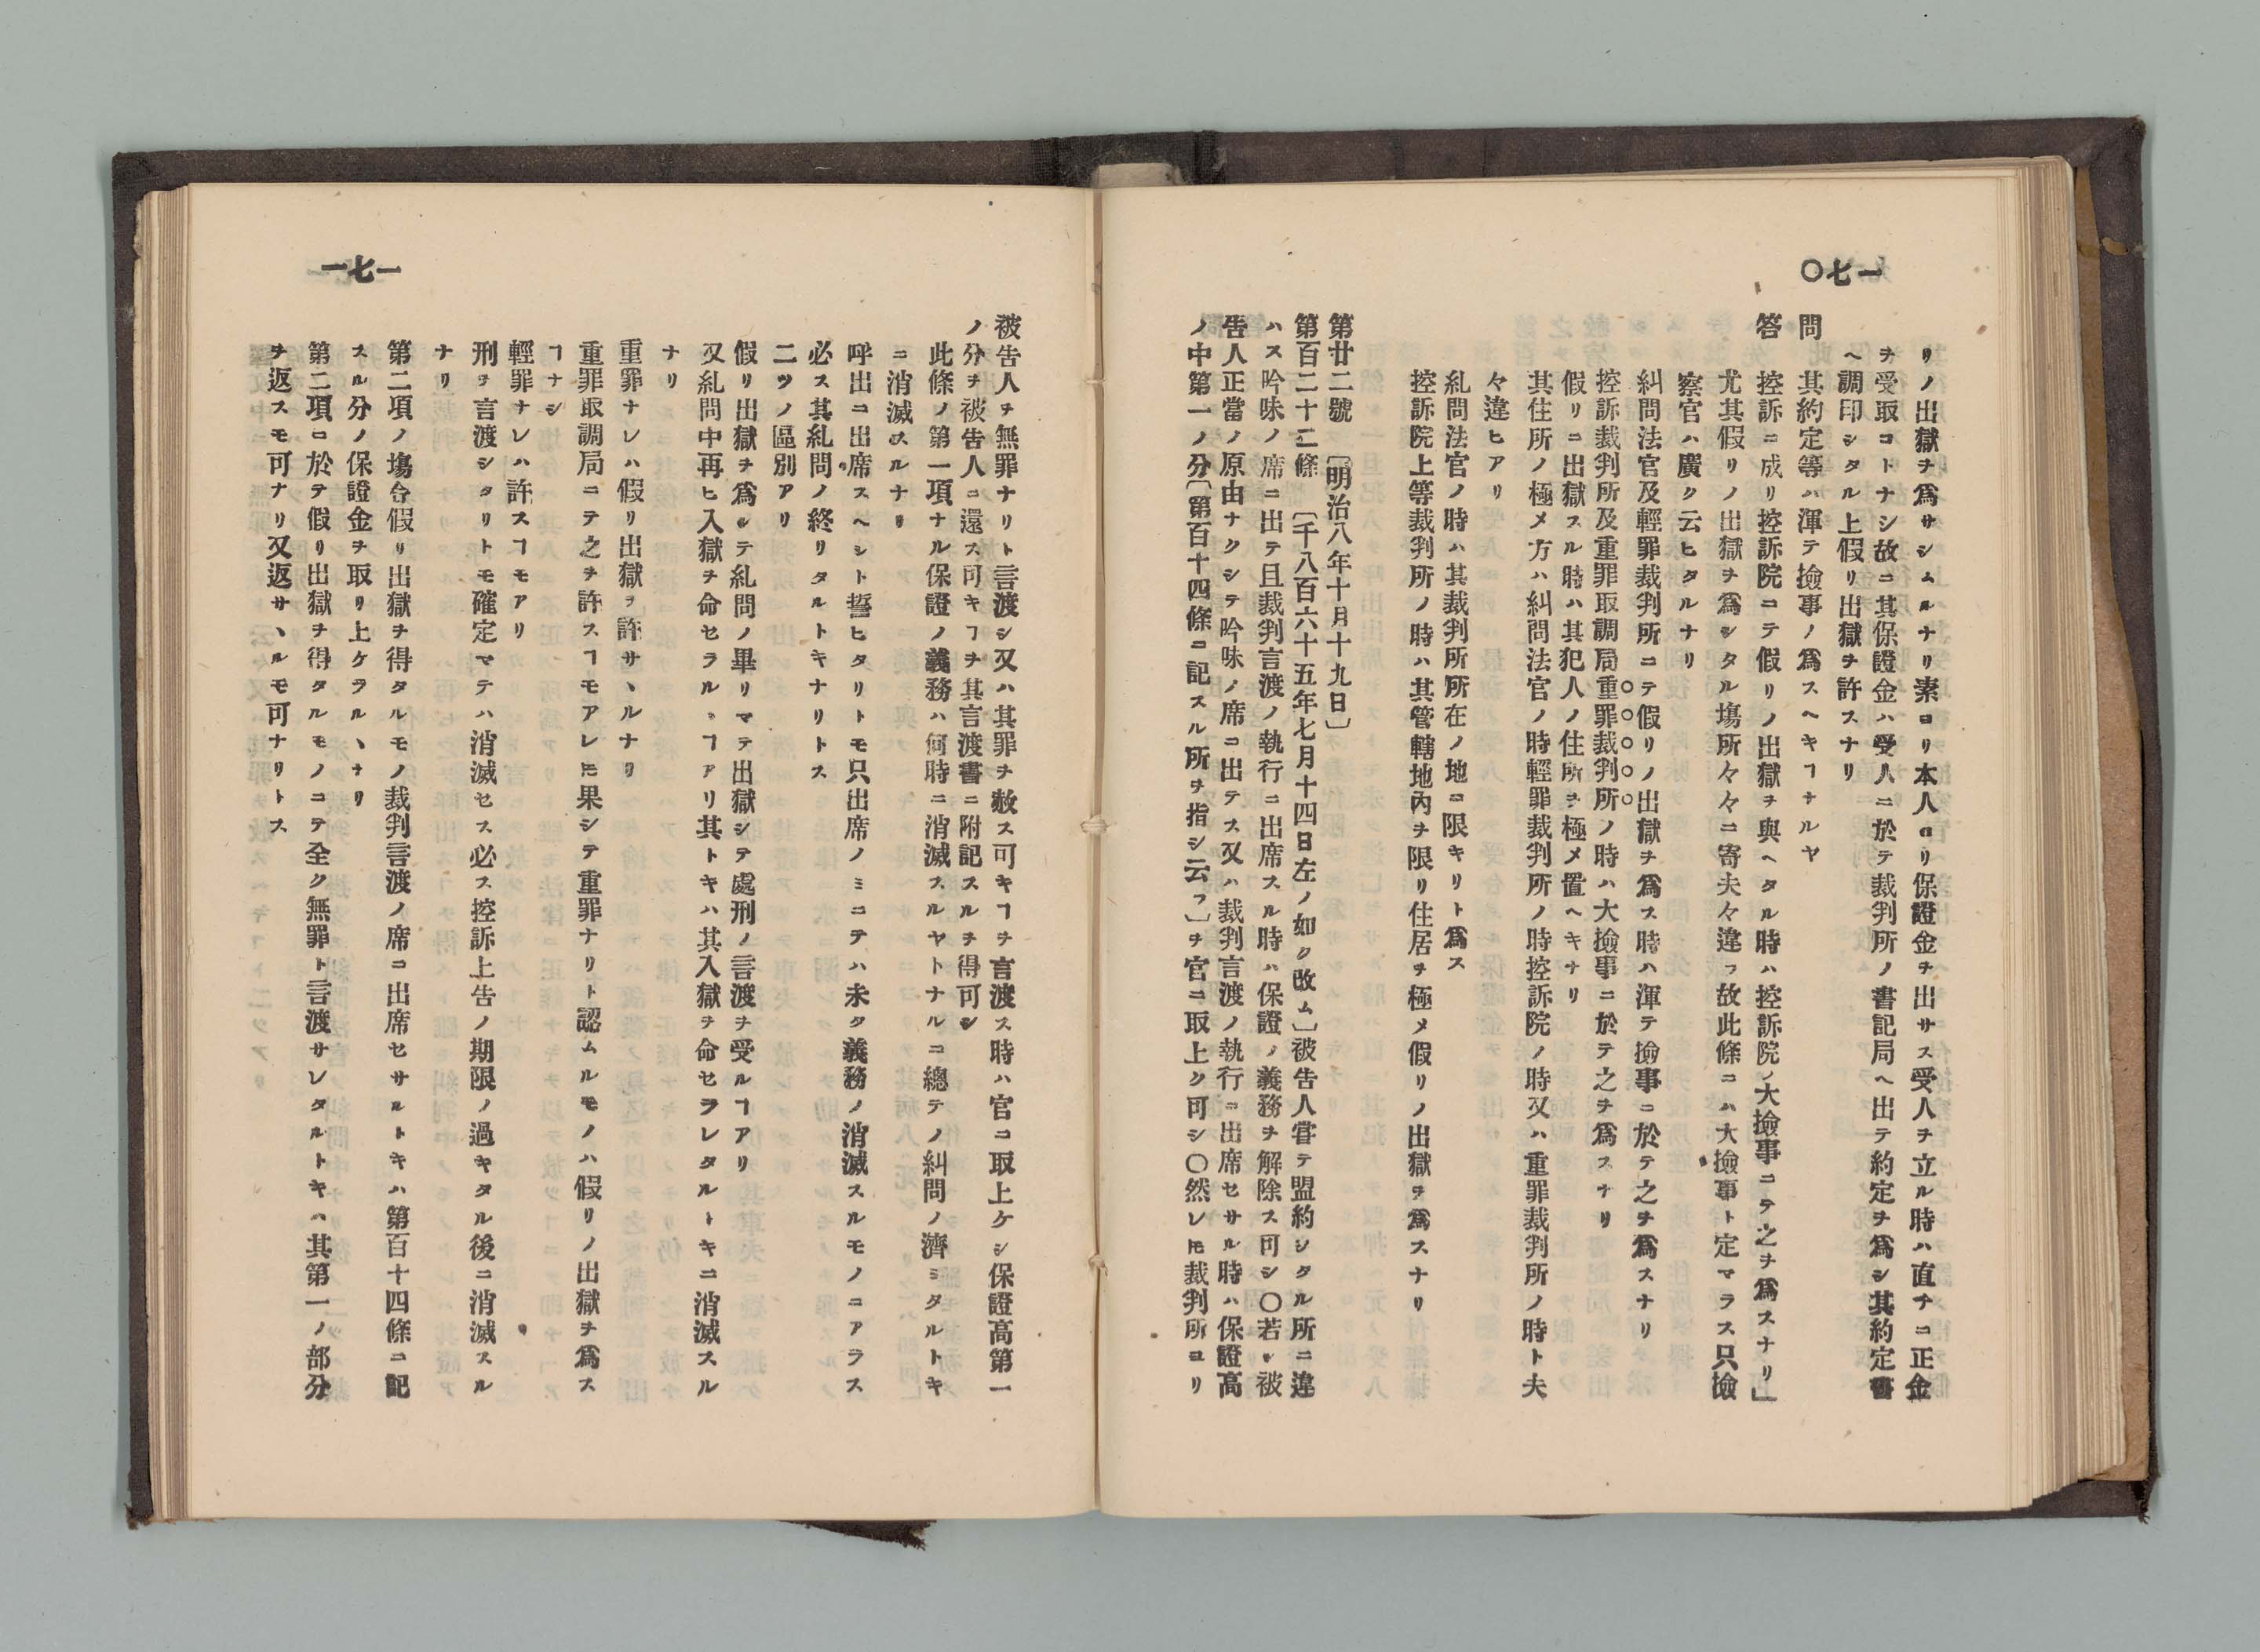 一七〇
リノ出獄ヲ爲サシムルナリ素ヨリ本人ヨリ保證金ヲ出サス受人ヲ立ル時ハ直チニ正金
ヲ受取コトナシ故ニ其保證金ハ受人ニ於テ裁判所ノ書記局ヘ出テ約定ヲ爲シ其約定書
ヘ調印シタル上假リ出獄ヲ許スナリ
問 其約定等ハ渾テ撿事ノ爲スヘキヿナルヤ
答 控訴ニ成リ控訴院ニテ假リノ出獄ヲ與ヘタル時ハ控訴院ノ大撿事ニテ之ヲ爲スナリ」
尤其假リノ出獄ヲ爲シタル塲所々々ニ寄夫々違フ故此條ニハ大撿事ト定マラス只撿
察官ハ廣ク云ヒタルナリ
糾問法官及輕罪裁判所ニテ假リノ出獄ヲ爲ス時ハ渾テ撿事ニ於テ之ヲ爲スナリ
控訴裁判所及重罪取調局重罪裁判所ノ時ハ大撿事ニ於テ之ヲ爲スナリ
假リニ出獄スル時ハ其犯人ノ住所ヲ極メ置ヘキナリ
其住所ノ極メ方ハ糾問法官ノ時輕罪裁判所ノ時控訴院ノ時又ハ重罪裁判所ノ時ト夫
々違ヒアリ
糺問法官ノ時ハ其裁判所所在ノ地ニ限キリト爲ス
控訴院上等裁判所ノ時ハ其管轄地內ヲ限リ住居ヲ極メ假リノ出獄ヲ爲スナリ
第廿二號 〔明治八年十月十九日〕
第百二十二條 〔千八百六十五年七月十四日左ノ如ク改ム〕被告人甞テ盟約シタル所ニ違
ハス吟味ノ席ニ出テ且裁判言渡ノ執行ニ出席スル時ハ保證ノ義務ヲ解除ス可シ〇若シ被
告人正當ノ原由ナクシテ吟味ノ席ニ出テス又ハ裁判言渡ノ執行ニ出席セサル時ハ保證高
ノ中第一ノ分〔第百十四條ニ記スル所ヲ指シ云フ〕ヲ官ニ取上ク可シ〇然レ𪜈裁判所ヨリ
一七一
被告人ヲ無罪ナリト言渡シ又ハ其罪ヲ赦ス可キヿヲ言渡ス時ハ官ニ取上ケシ保證高第一
ノ分ヲ被告人ニ還ス可キヿヲ其言渡書ニ附記スルヲ得可シ
此條ノ第一項ナル保證ノ義務ハ何時ニ消滅スルヤトナルニ總テノ糾問ノ濟ミタルトキ
ニ消滅スルナリ
呼出ニ出席スヘシト誓ヒタリトモ只出席ノミニテハ未タ義務ノ消滅スルモノニアラス
必ス其糺問ノ終リタルトキナリトス
二ツノ區別アリ
假リ出獄ヲ爲シテ糺問ノ畢リマテ出獄シテ處刑ノ言渡ヲ受ルヿアリ
又糺問中再ヒ入獄ヲ命セラルヽヿアリ其トキハ其入獄ヲ命セラレタルトキニ消滅スル
ナリ
重罪ナレハ假リ出獄ヲ許サヽルナリ
重罪取調局ニテ之ヲ許スヿモアレ𪜈果シテ重罪ナリト認ムルモノハ假リノ出獄ヲ爲ス
ヿナシ
輕罪ナレハ許スヿモアリ
刑ヲ言渡シタリトモ確定マテハ消滅セス必ス控訴上告ノ期限ノ過キタル後ニ消滅スル
ナリ
第二項ノ塲合假リ出獄ヲ得タルモノ裁判言渡ノ席ニ出席セサルトキハ第百十四條ニ記
スル分ノ保證金ヲ取リ上ケラルヽナリ
第二項ニ於テ假リ出獄ヲ得タルモノニテ全ク無罪ト言渡サレタルトキハ其第一ノ部分
ヲ返スモ可ナリ又返サヽルモ可ナリトス